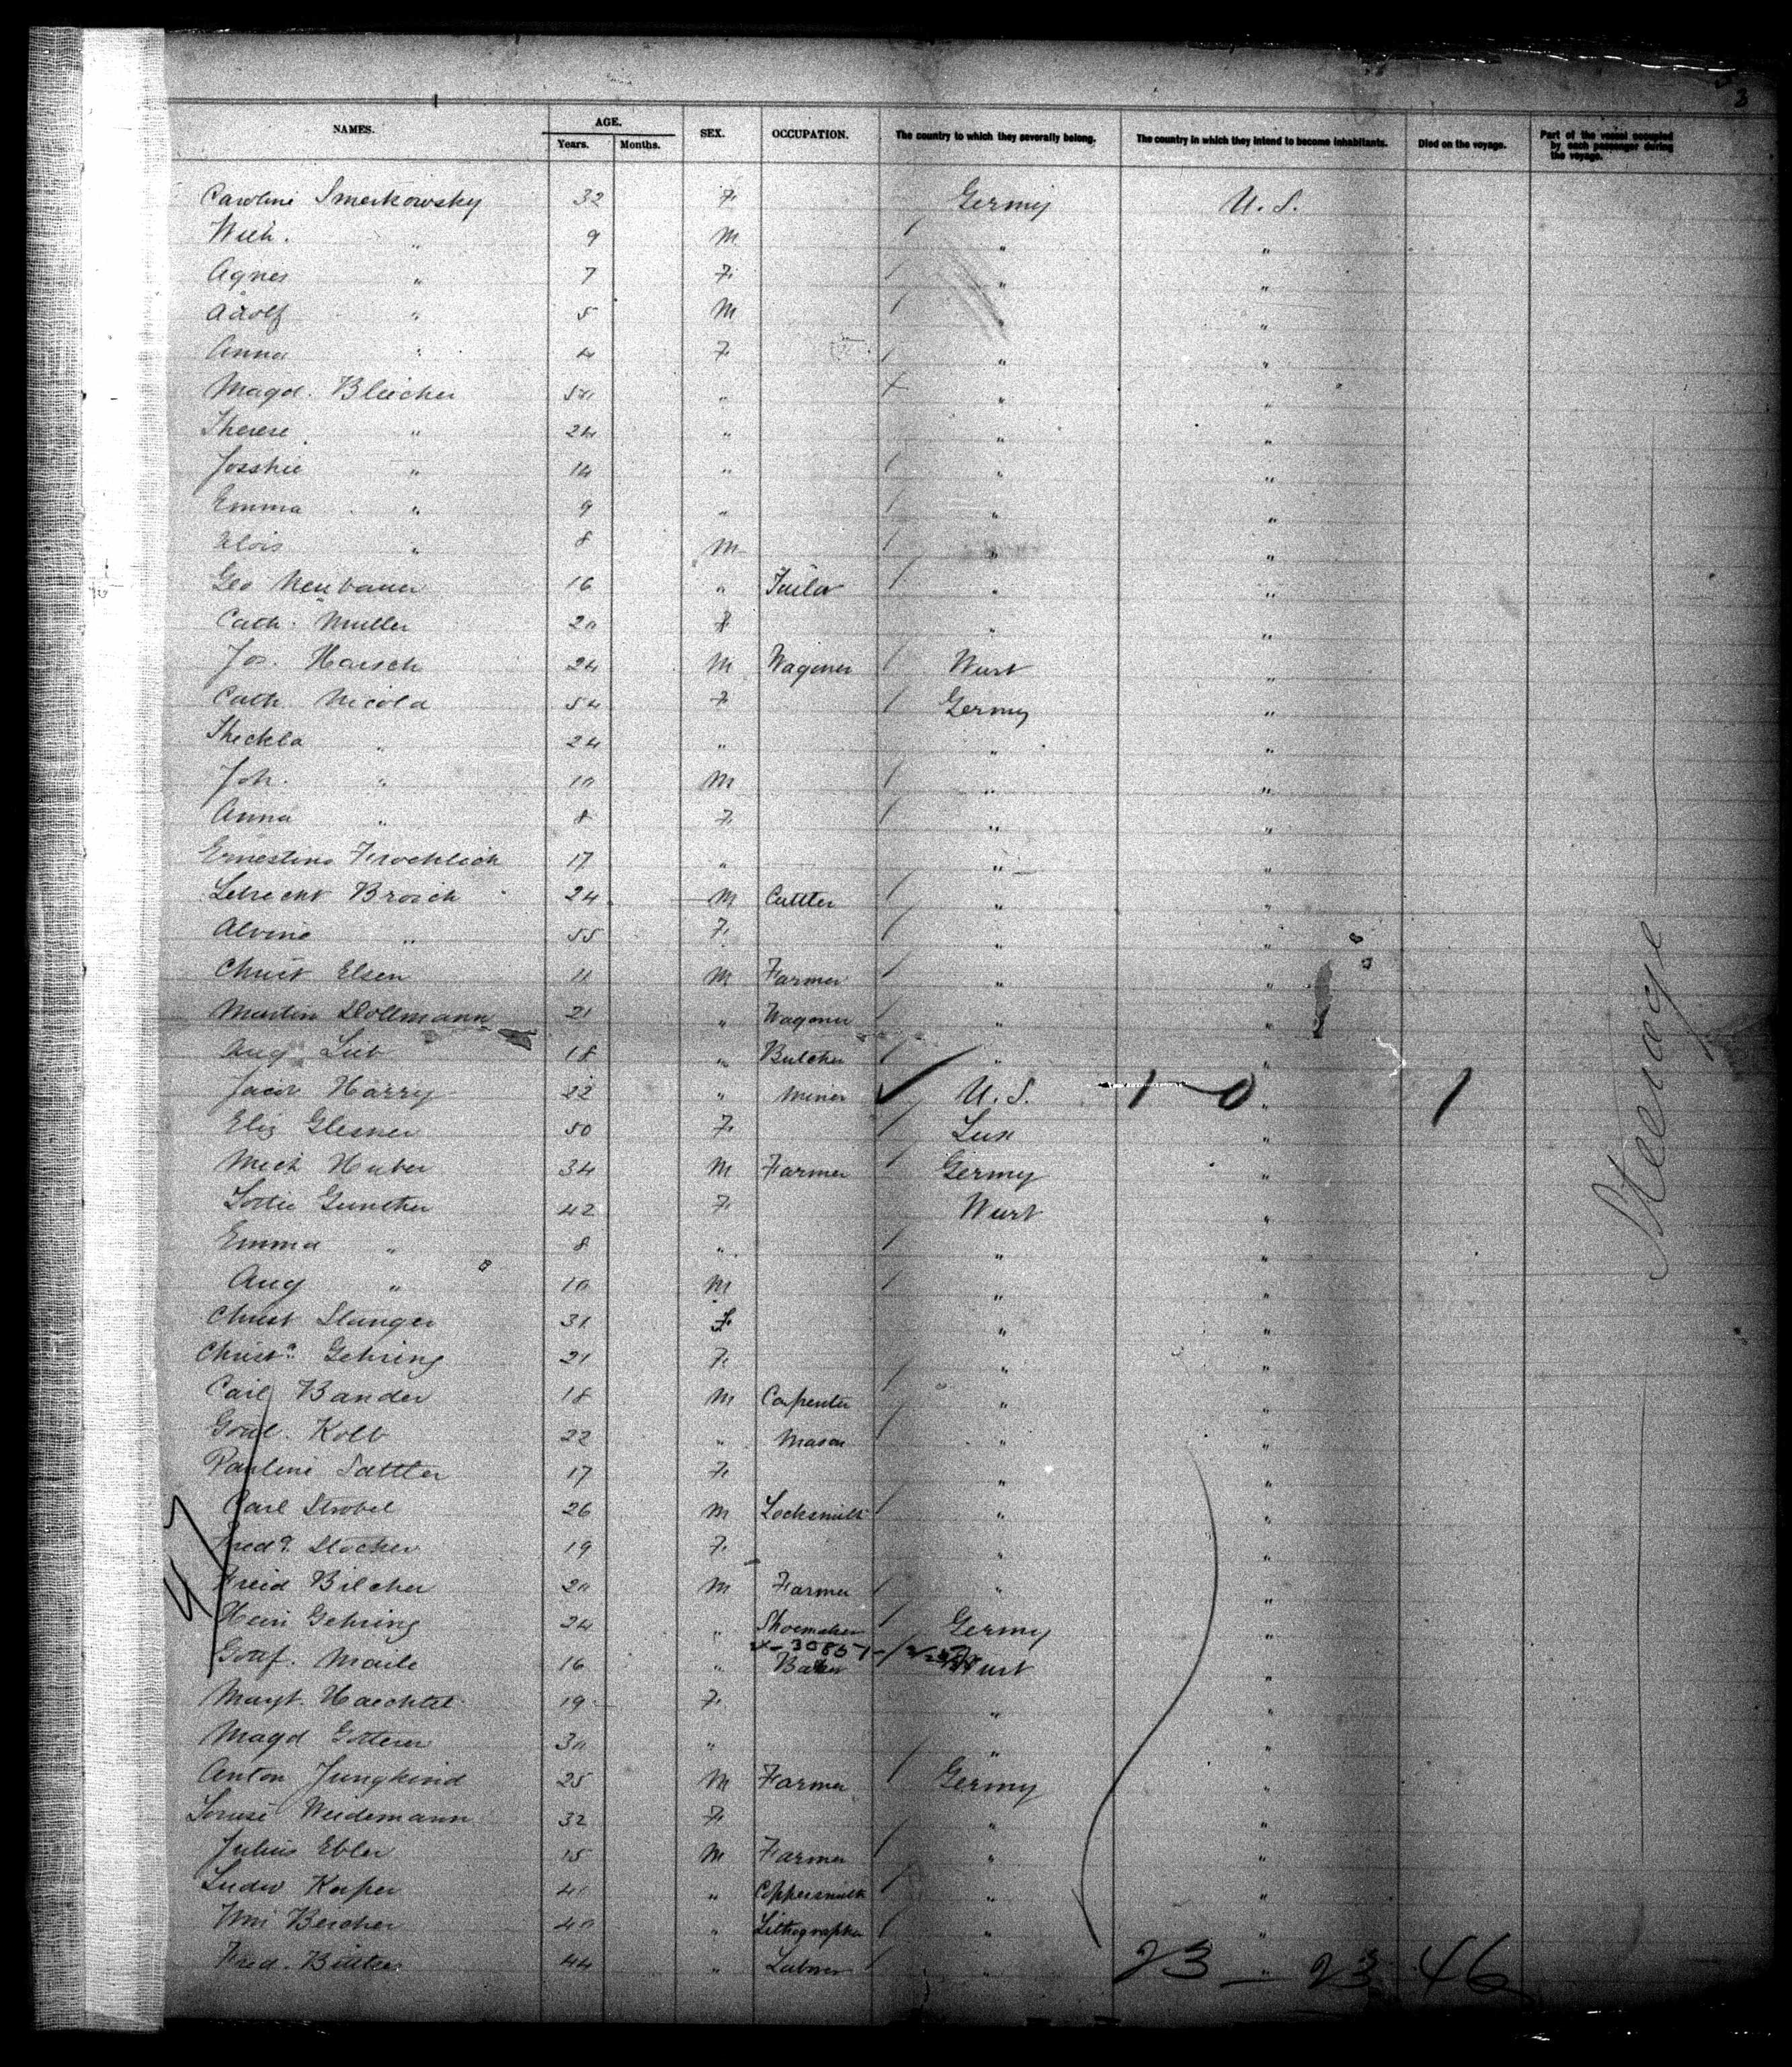 3
NAMES. AGE. SEX. OCCUPATION. The country to which they severally belong. The country in which they intend to become inhabitants. Died on the voyage. Part of the vessel occupied by each passenger during the voyage.
Years. Months.
Caroline Smerkowsky 32 F. Germy U.S.
Wilh. " 9 M " "
Agnes " 7 F. " "
Adolf " 5 M " "
Anna " 4 F. " "
Magd. Bleicher " " "
Therese " 24 " " "
" 14 " " "
Emma " 9 " " "
Alois " 8 M " "
Geo Neubauer 16 " Tailor " "
Cath. Müller 20 F " "
Jos. Haisch 24 M Wagoner Wurt "
Cath. Nicola 54 F. Germy "
Theckla " 24 " " "
Joh. " 10 M " "
Anna " 8 F. " "
Ernestine Froehlich 17 " " "
Lebrecht Broich 24 M Cuttler " "
Alvine " 55 F. " "
Christ Elsen 11 M Farmer " "
Martin Dollmann 21 " Wagoner " "
Aug 18 " Butcher " "
Jacob Harry 22 " Miner U.S. 1 0 " 1
Elis Glesner 50 F. Lux "
Mich Huber 34 M Farmer Germy "
Gunther 42 F. Wurt "
Emma " 8 " " "
Aug " 10 M " "
Christ Stanger 31 F. " "
Christa. Gehring 21 F. " "
Carl Bander 18 M Carpenter " "
Kolb 22 " Mason " "
Pauline Sattler 17 F. " "
Carl Strobel 26 M Locksmith " "
Stocker 19 F. " "
Bilcher 20 M Farmer " "
Hein Gehring 24 " Shoemaker Germy "
Maile 16 " Baker Wurt "
Haechtel 19 F. " "
Magd 30 " " "
Anton Jungkind 25 M Farmer Germy "
Louise Weidemann 32 F. " "
Julius Ebler 15 M Farmer " "
Ludw 41 " Coppersmith " "
Wm 40 " Lithographer " "
Fred. 44 " Labour " "
23 — 23 46
Steerage